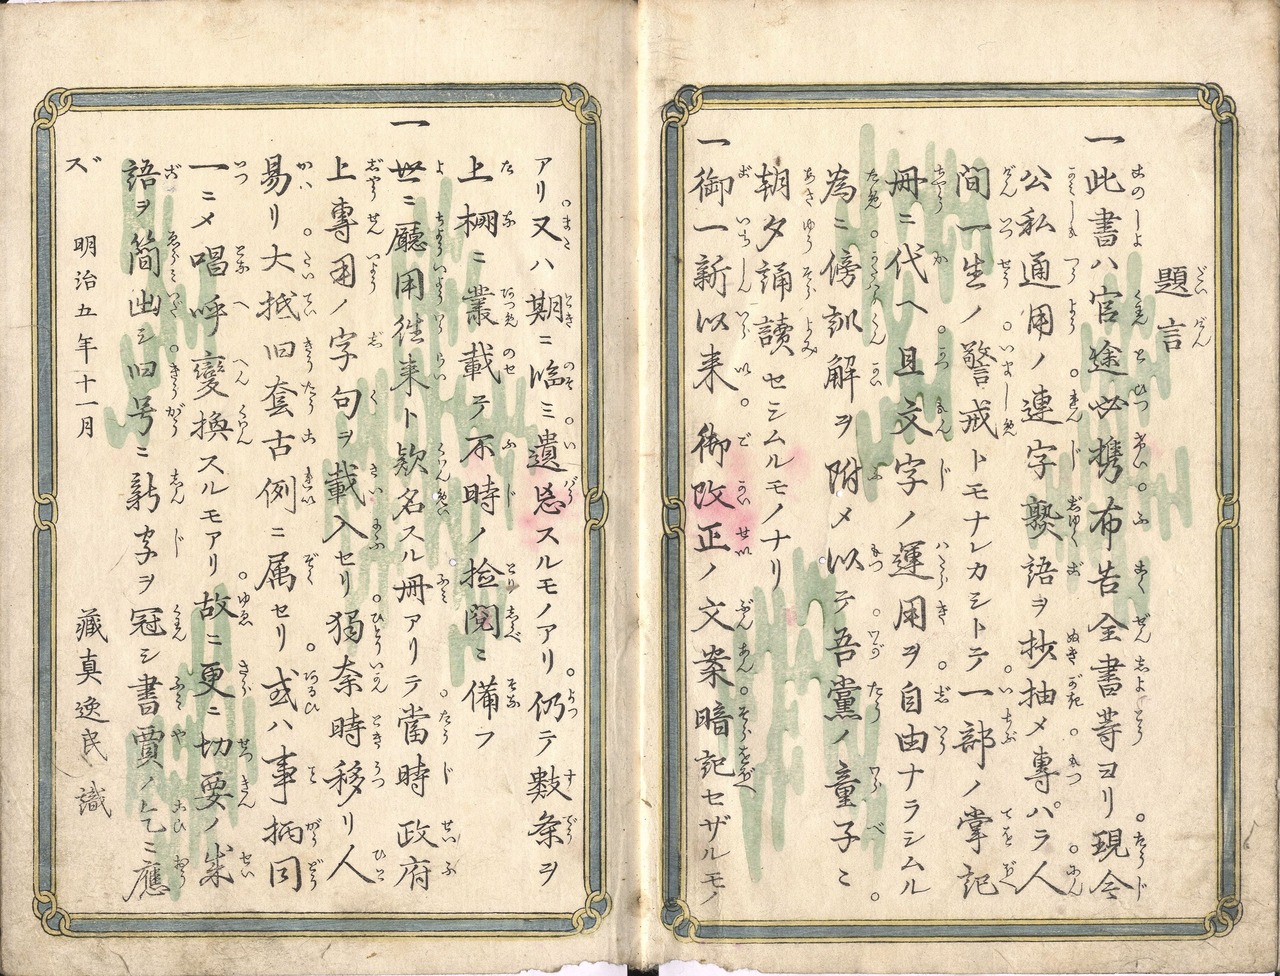 題言
一此書ハ官途必携布告全書等ヨリ現今
公私通用ノ連字熟語ヲ抄抽メ專パラ人
間一生ノ警戒トモナレカシトテ一部ノ掌記
冊ニ代ヘ且文字ノ運用ヲ自由ナラシムル
為ニ傍訓解ヲ附メ以テ吾黨ノ童子ニ
朝夕誦讀セシムルモノナリ
一御一新以来御改正ノ文案暗記セザルモノ
アリ又ハ期ニ臨ミ遺忘スルモノアリ仍テ數条ヲ
上棚ニ叢載テ不時ノ捡閲ニ備フ
一世ニ廳用徃来ト欵名スル冊アリテ當時政府
上專用ノ字句ヲ載入セリ獨奈時移リ人
易リ大抵旧套古例ニ属セリ或ハ事柄同
一ニメ唱呼變換スルモアリ故ニ更ニ切要ノ成
語ヲ簡出シ旧号ニ新字ヲ冠シ書賈ノ乞ニ應
ズ 明治五年十一月 藏真逸民識